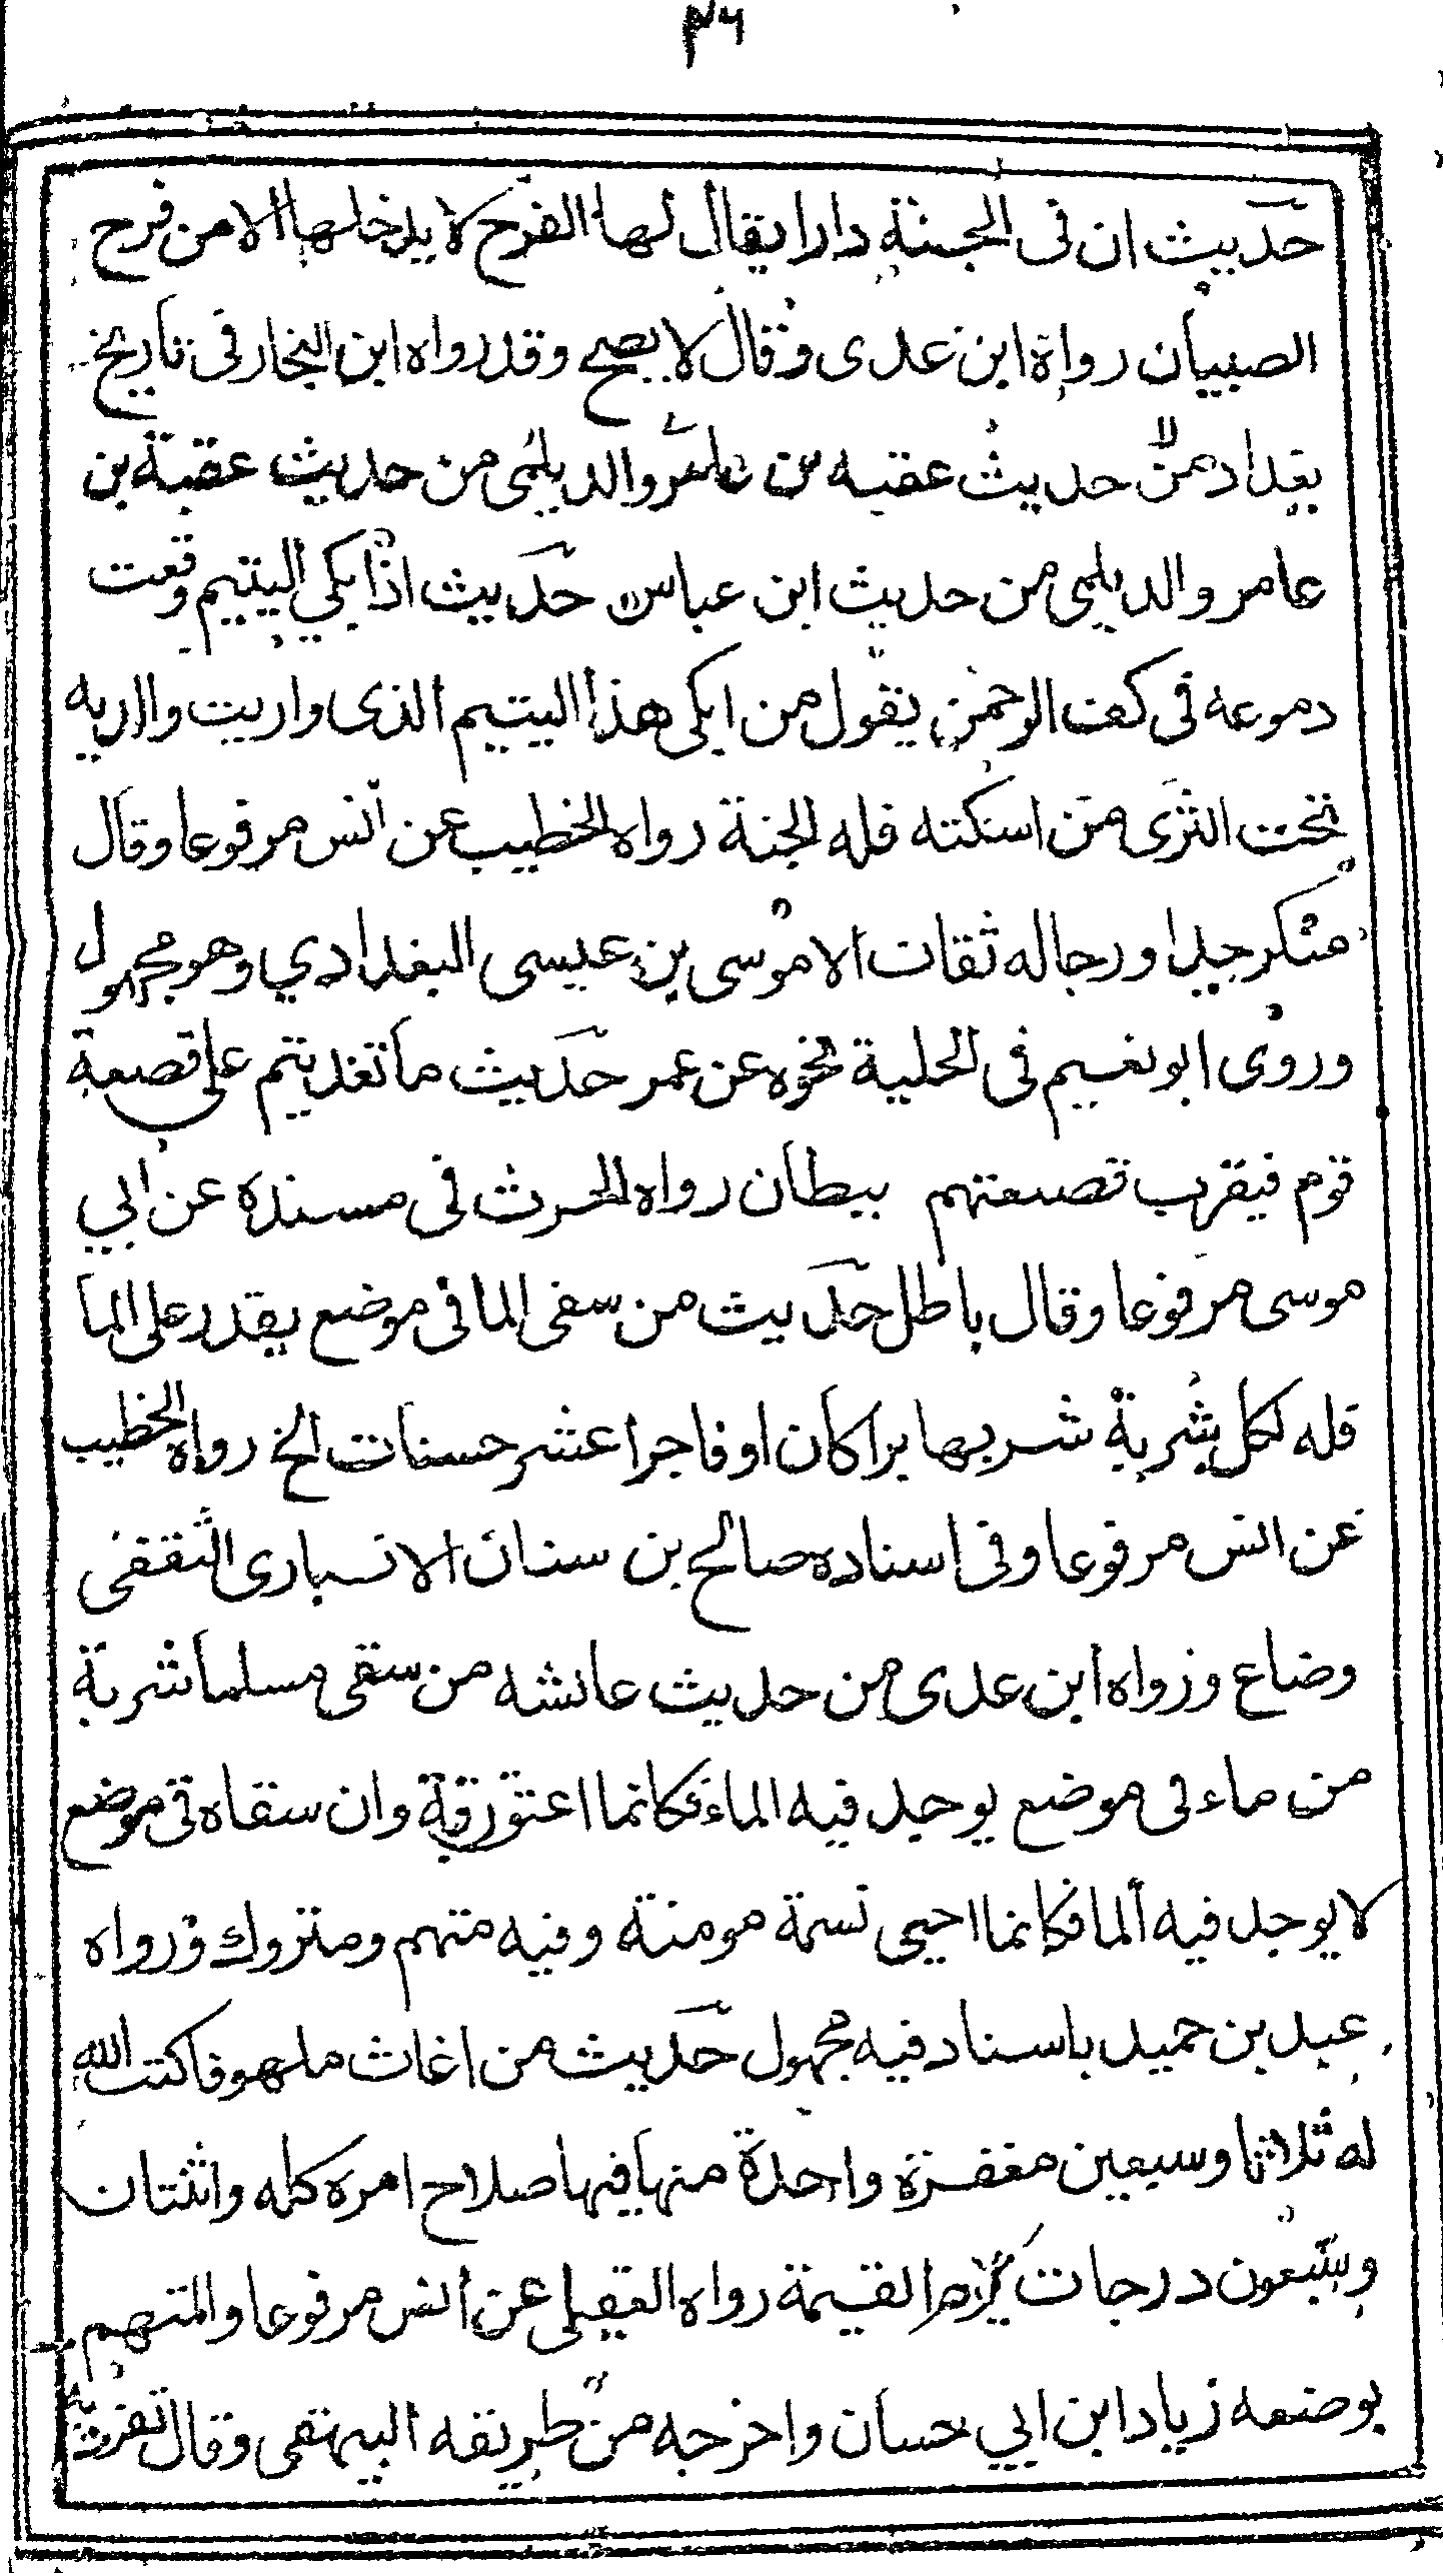 ٣٦
حديث ان فى الجنة دارا يقال لها الفرح لا يدخلها الا من فرح
الصبيان رواه ابن عدى وقال لا يصح وقد رواه ابن النجار فى تاريخ
بغداد من حديث عقبه بن عامر والديلمى من حديث عقبة بن
عامر والديلمى من حديث ابن عباس حديث اذا بكي اليتيم وقعت
دموعه فى كف الرحمن يقول من ابكى هذا اليتيم الذى واريت والديه
تحت الثرى من اسكته فله الجنة رواه الخطيب عن انس مرفوعا وقال
منكر جدا ورجاله ثقات الا موسى بن عيسى البغدادي وهو مجهول
وروى ابو نعيم فى الحلية نحوه عن عمر حديث ما تغد يتم على قصعة
قوم فيقرب قصعتهم بيطان رواه الحرث فى مسنده عن ابي
موسى مرفوعا وقال باطل حديث من سقى الما فى موضع يقدر على الما
فله لكل شربة شربها براكان او فاجرا عشر حسنات الخ رواه الخطيب
عن انس مرفوعا وفى اسناده صالح بن سنان الانبارى الثقفى
وضاع ورواه ابن عدى من حديث عائشه من سقى مسلما شربة
من ماء فى موضع يوجد فيه الماء فكانما اعتق رقبة وان سقاه فى موضع
لا يوجد فيه الما فكانما احيى نسمة مومنة وفيه متهم ومتروك ورواه
عبد بن حميد باسناد فيه مجهول حديث من اغاث ملهوفا كتب الله
له ثلاثا وسبعين مغفرة واحدة منها فيها صلاح امره كله واثنتان
وسبعون درجات يوم القيمة رواه العقيلى عن انس مرفوعا والمتهم
بوضعه زياد ابن ابي حسان واخرجه من طريقه البيهقى وقال تفرد به